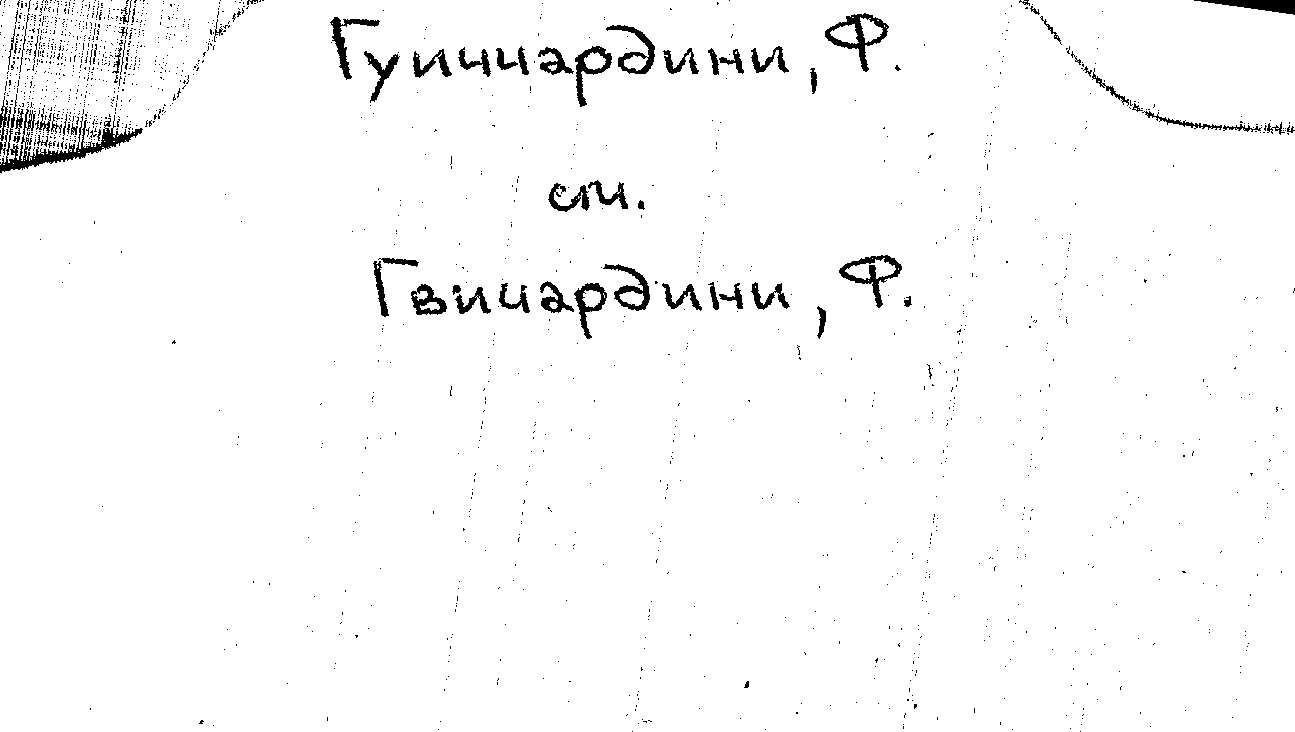 Гуиччардини, Ф.
см.
Гвичардини, Ф.